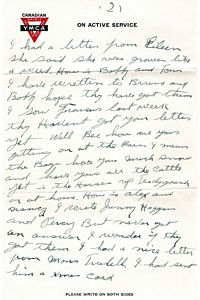 CANADIAN
YMCA
ON ACTIVE SERVICE
2
I had a letter from Eileen
she said she was growing like
a weed. How is Bobby and Tom
I have written to Bruno and
Bobb hope they have got them
I saw Travais last week
they Havient got your letter
yet. Will Bee how are you
getting on at the Rain I mean
the Boys have you much snow
and have you all the Cattle
yet is the Horses up
or at home. How is
Nancy I wrote Jenny Hogan
and Percy But never got
an answer, I wonder if they
got them I had a nice letter
from Mons Trudell I had sent
him a Xmas Card
PLEASE WRITE ON BOTH SIDES